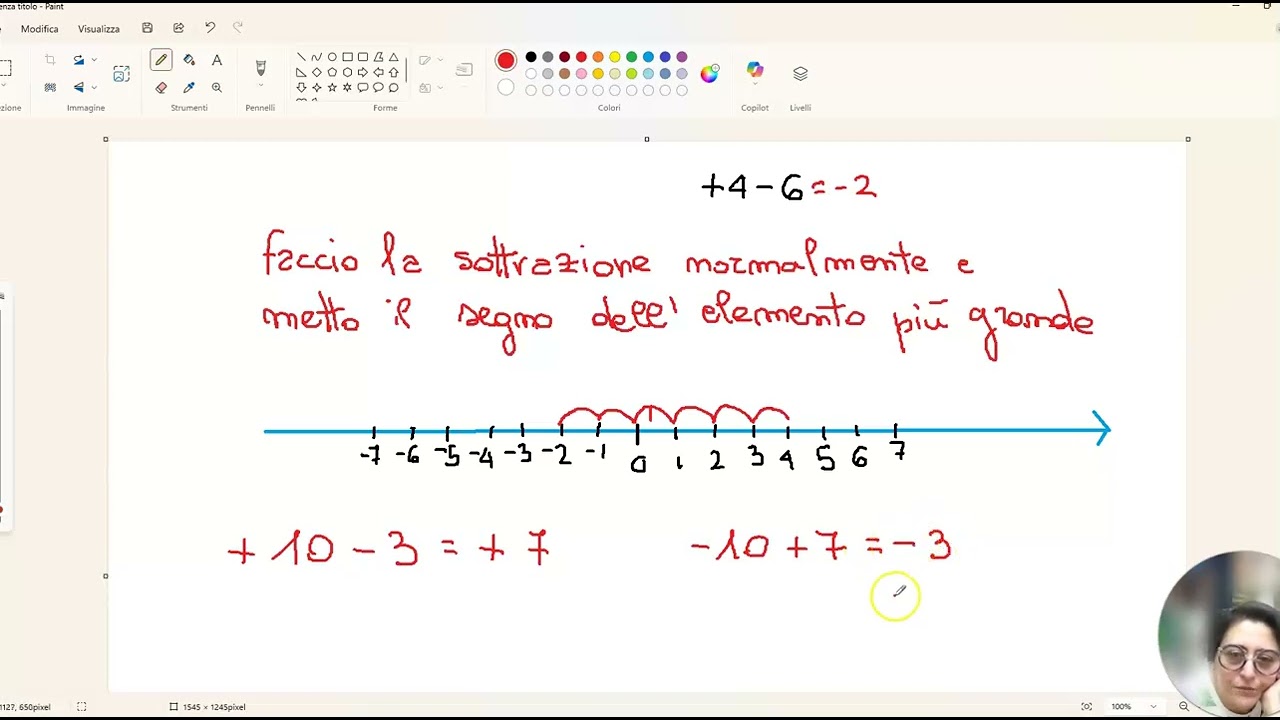 enza titolo - Paint
Modifica Visualizza
ezione Immagine Strumenti Pennelli Forme Colori Copilot Livelli
+4-6=-2
faccio la sottrazione normalmente e
metto il segno dell' elemento più grande
-7 -6 -5 -4 -3 -2 -1 0 1 2 3 4 5 6 7
+10-3=+7 -10+7=-3
1127, 650pixel 1545 × 1245pixel 100%